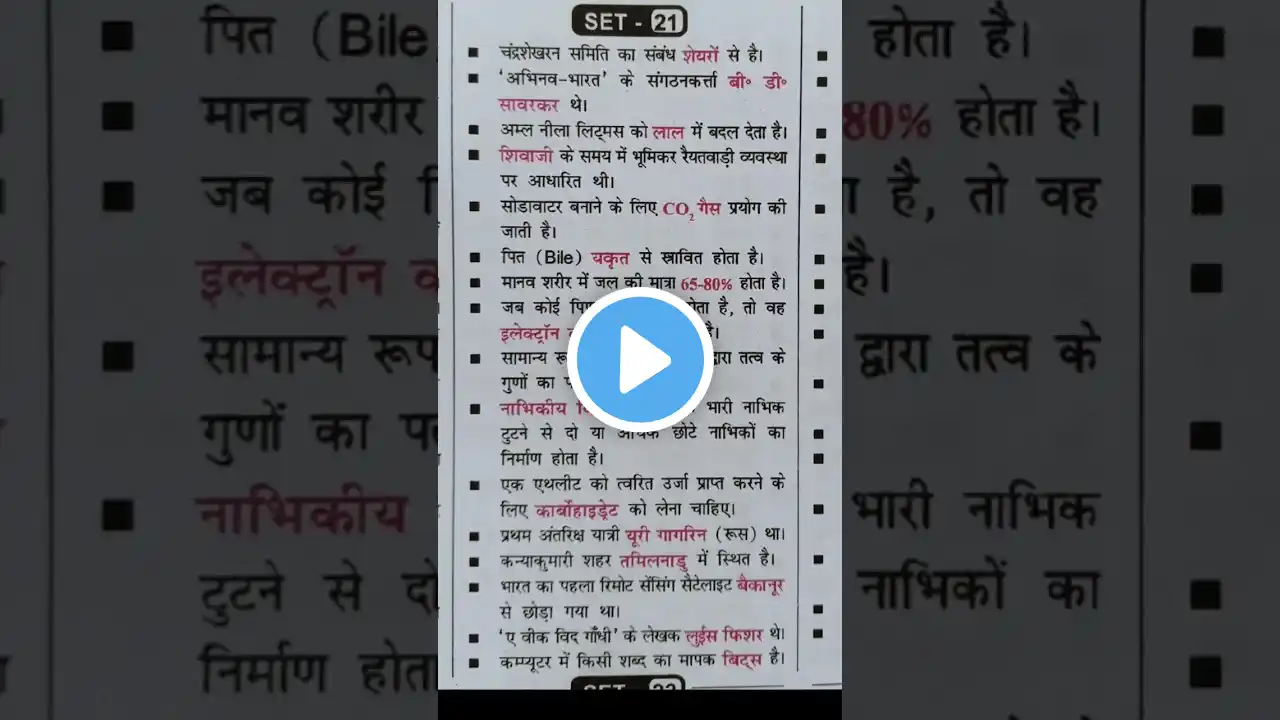 SET - 21
चंद्रशेखरन समिति का संबंध शेयरों से है।
'अभिनव-भारत' के संगठनकर्त्ता बी॰ डी॰
सावरकर थे।
अम्ल नीला लिट्मस को लाल में बदल देता है।
शिवाजी के समय में भूमिकर रैयतवाड़ी व्यवस्था
पर आधारित थी।
सोडावाटर बनाने के लिए CO₂ गैस प्रयोग की
जाती है।
पित (Bile) यकृत से स्रावित होता है।
मानव शरीर में जल की मात्रा 65-80% होता है।
जब कोई है, तो वह
इलेक्ट्रॉन है।
सामान्य द्वारा तत्व के
गुणों का
नाभिकीय भारी नाभिक
टुटने से दो या छोटे नाभिकों का
निर्माण होता है।
एक एथलीट को त्वरित उर्जा प्राप्त करने के
लिए कार्बोहाइड्रेट को लेना चाहिए।
प्रथम अंतरिक्ष यात्री यूरी गागरिन (रूस) था।
कन्याकुमारी शहर तमिलनाडु में स्थित है।
भारत का पहला रिमोट सेंसिंग सैटेलाइट बैकानूर
से छोड़ा गया था।
'ए वीक विद गाँधी' के लेखक लुईस फिशर थे।
कम्प्यूटर में किसी शब्द का मापक बिट्स है।
पित (Bile होता है।
मानव शरीर 80% होता है।
जब कोई है, तो वह
इलेक्ट्रॉन है।
सामान्य रूप द्वारा तत्व के
गुणों का
नाभिकीय भारी नाभिक
टुटने से नाभिकों का
निर्माण होता